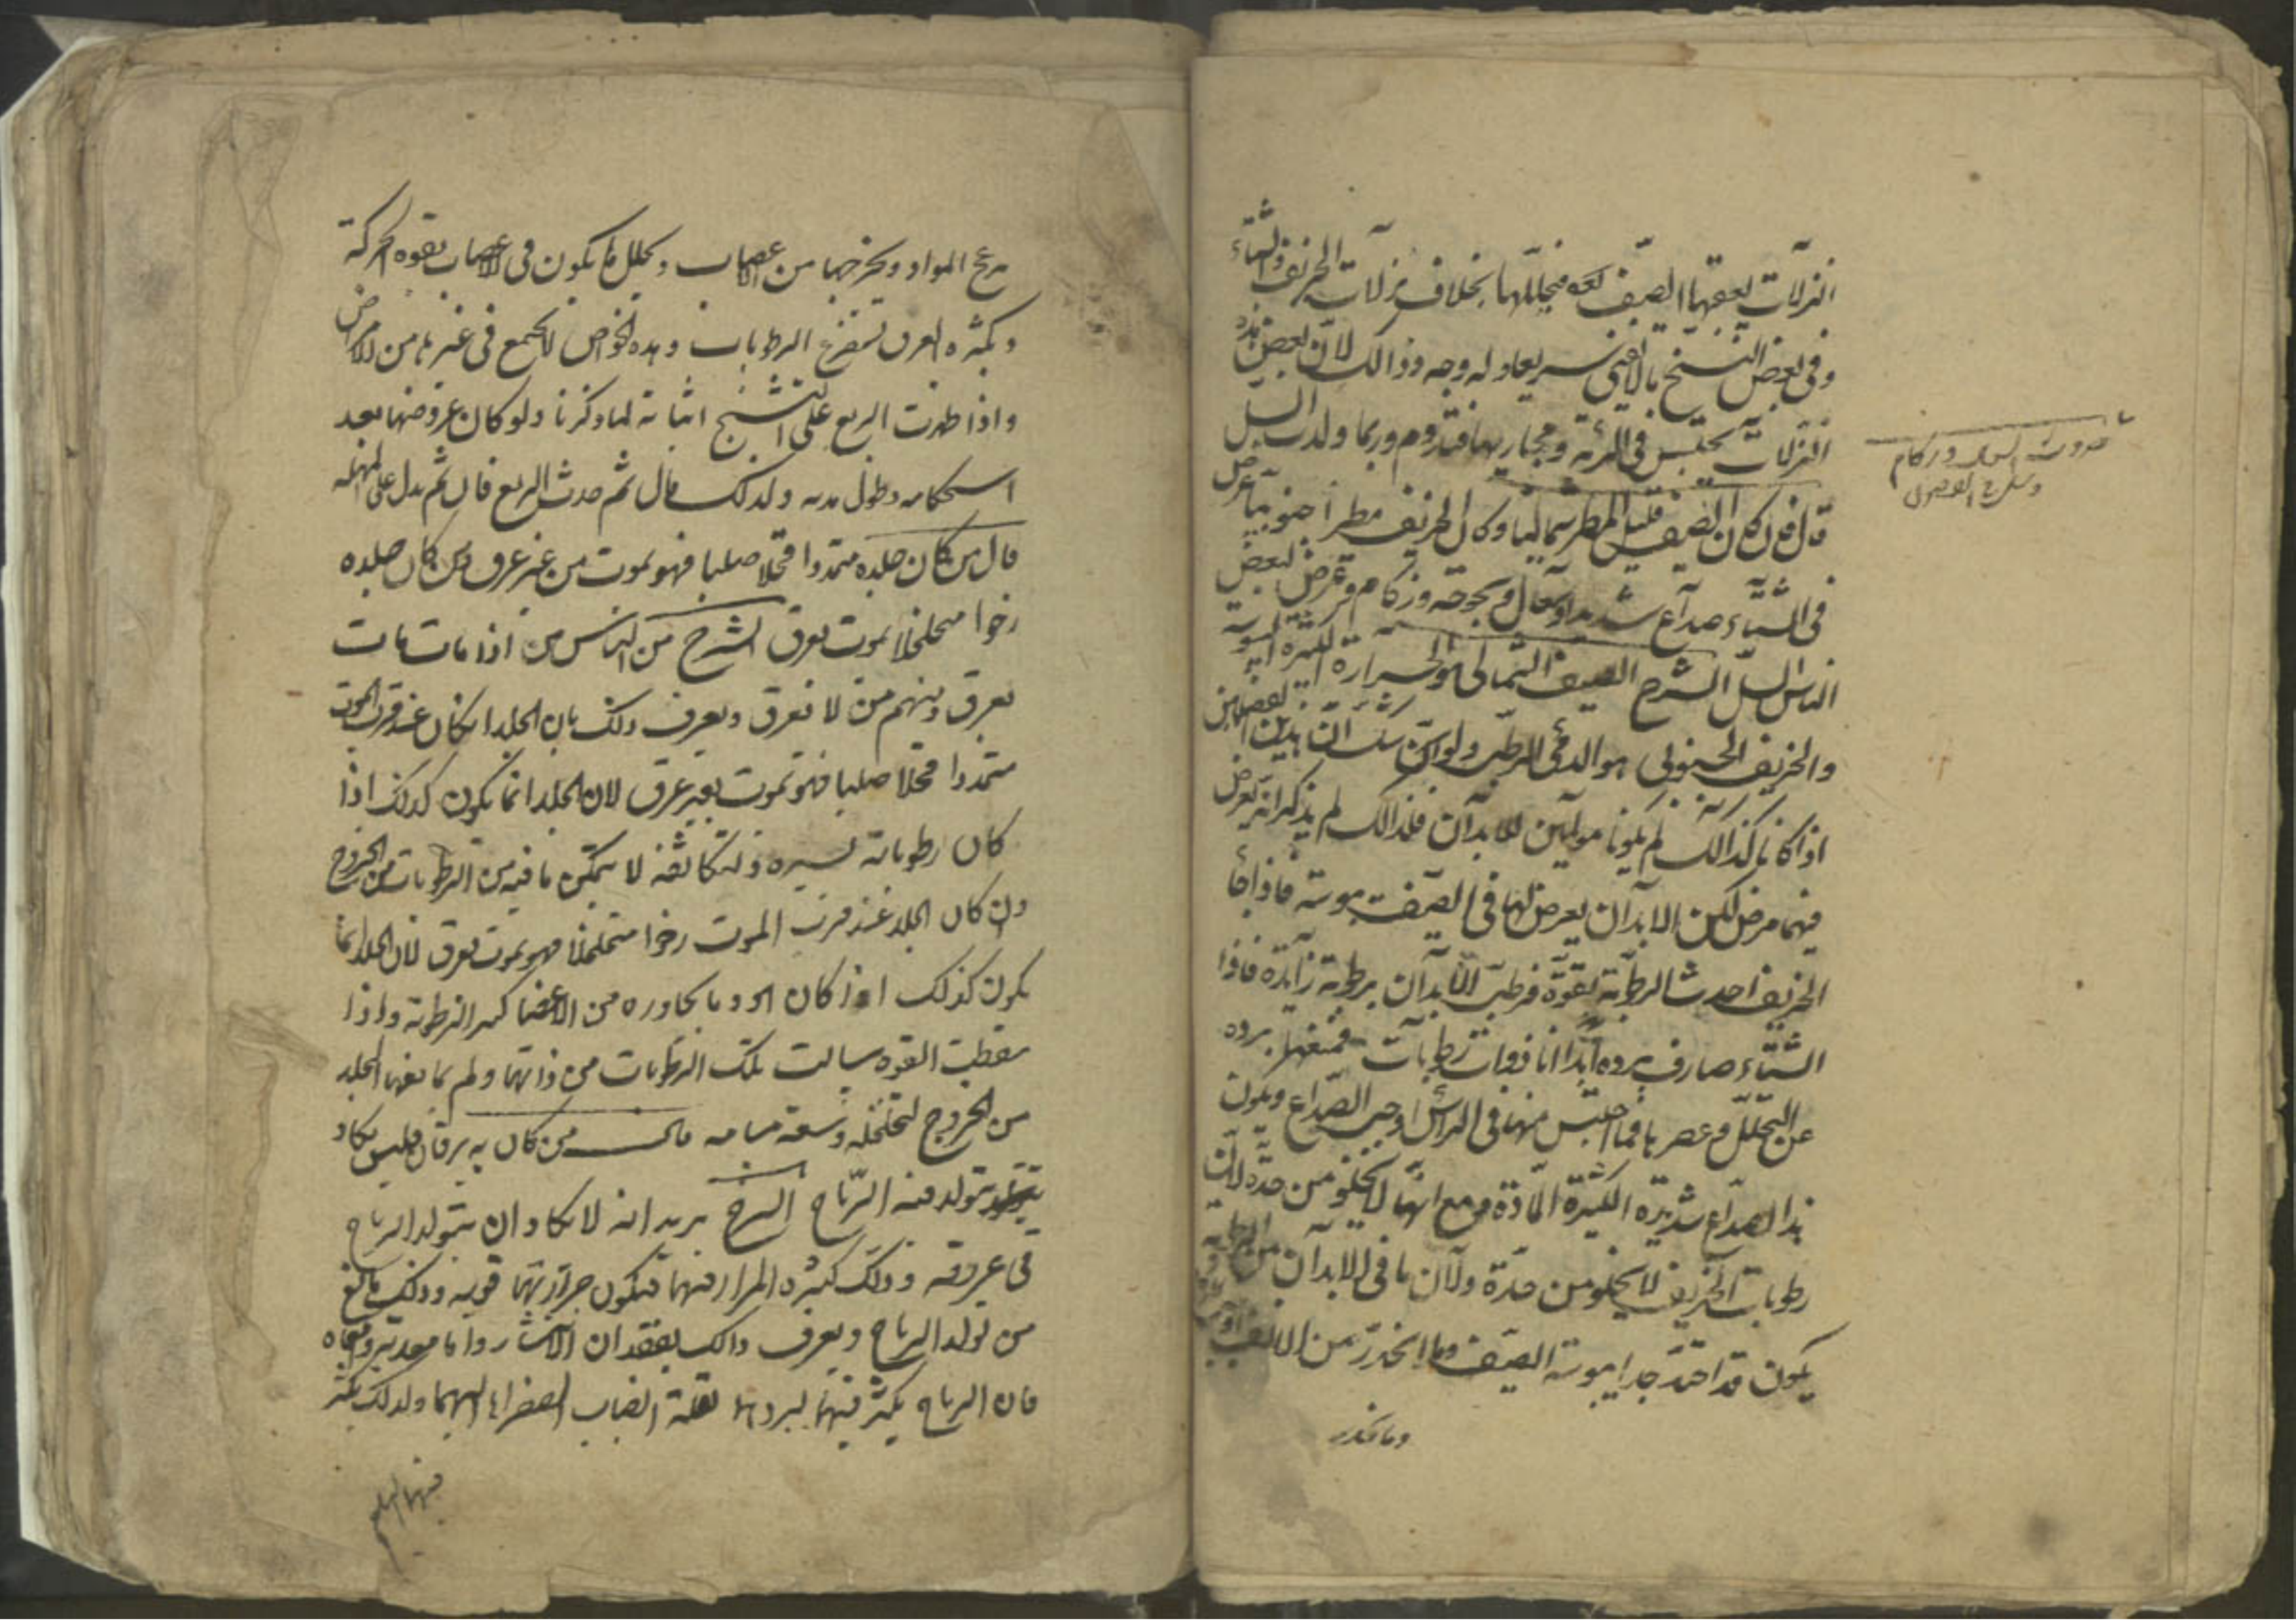 النزلات يعقبها الصيف بعده فيحللها بخلاف نزلات الخريف والشتاء
وفى بعض النسخ وله وجه وذالك لان بعض هذه
النزلات يحتبس فى الرئة و مجاريها وربما ولدت السل
قال فان كان الصيف قليل المطر شماليا وكان الخريف مطرا جنوبيا عرض
فى الشتاء صداع شديد وسعال و بحوحة وزكام وعرض لبعض
الناس السل الشرح الصيف الشمالى هو الحرارة
والخريف الجنوبى هو الدفئ الرطب
اذا كانا كذالك لم يكونا مولمين للابدان فلذالك لم يذكر انه يعرض
فيهما مرض لكن الابدان يعرض لها فى الصيف يبوسة فاذا جاء
الخريف احدث الرطوبة بقوة فرطب الابدان برطوبة زايدة فاذا
الشتاء صادف برده ابدانا ذوات رطوبات فمنعها برده
عن التحلل و عصرها فما احتبس منها فى الراس اوجب الصداع ويكون
هذا الصداع شديدة الكثيرة المادة و مع انها لا يخلو من حدة لان
رطوبات الخريف لا يخلو من حدة ولان ما فى الابدان من الرطوبة
يكون قد احتد جدا يبوسة الصيف وما انحدر من الانف
وما انحدر
حدوث وزكام
وسل فى الفصول
المواد ويخرجها من الاعصاب ويحلل ما يكون فى الاعصاب بقوه الحركة
وبكثره العرق تستفرغ الرطوبات وهذه الخواص لا يجتمع فى غيرها من الامراض
واذا طرت الربع على التشنج لما ذكرنا ولو كان عروضها بعد
استحكامه وطول مدته ولذلك قال ثم حدث الربع فان ثم يدل على المهلة
قال من كان جلده متمددا قحلا صلبا فهو يموت من غير عرق ومن كان جلده
رخوا متخلخلا يموت بعرق الشرح من الناس من اذا مات مات
بعرق ومنهم من لا يعرق ويعرف ذلك بان الجلد ان كان عند قرب الموت
متمددا قحلا صلبا فهو يموت بغير عرق لان الجلد انما يكون كذلك اذا
كان رطوباته يسيره ولتكاثفه لا يمكن ما فيه من الرطوبات من الخروج
وان كان الجلد عند قرب الموت رخوا متخلخلا فهو يموت بعرق لان الجلد انما
يكون كذلك اذا كان هو وما يجاوره من الاعضا كثير الرطوبة واذا
سقطت القوه سالت تلك الرطوبات من ذاتها ولم يمانعها الجلد
من الخروج لتخلخله وسعة مسامه قال من كان به يرقان فليس يكاد
يتولد فيه الرياح الشرح يريد انه لا يكاد ان يتولد الرياح
فى عروقه وذلك لكثره المرار فيها فيكون حرارتها قويه وذلك مانع
من تولد الرياح ويعرف ذالك بفقدان واما معدته وامعاه
فان الرياح يكثر فيهما لبردها لقلة انصباب الصفرا اليهما ولذلك يكثر
فيهما البلغم